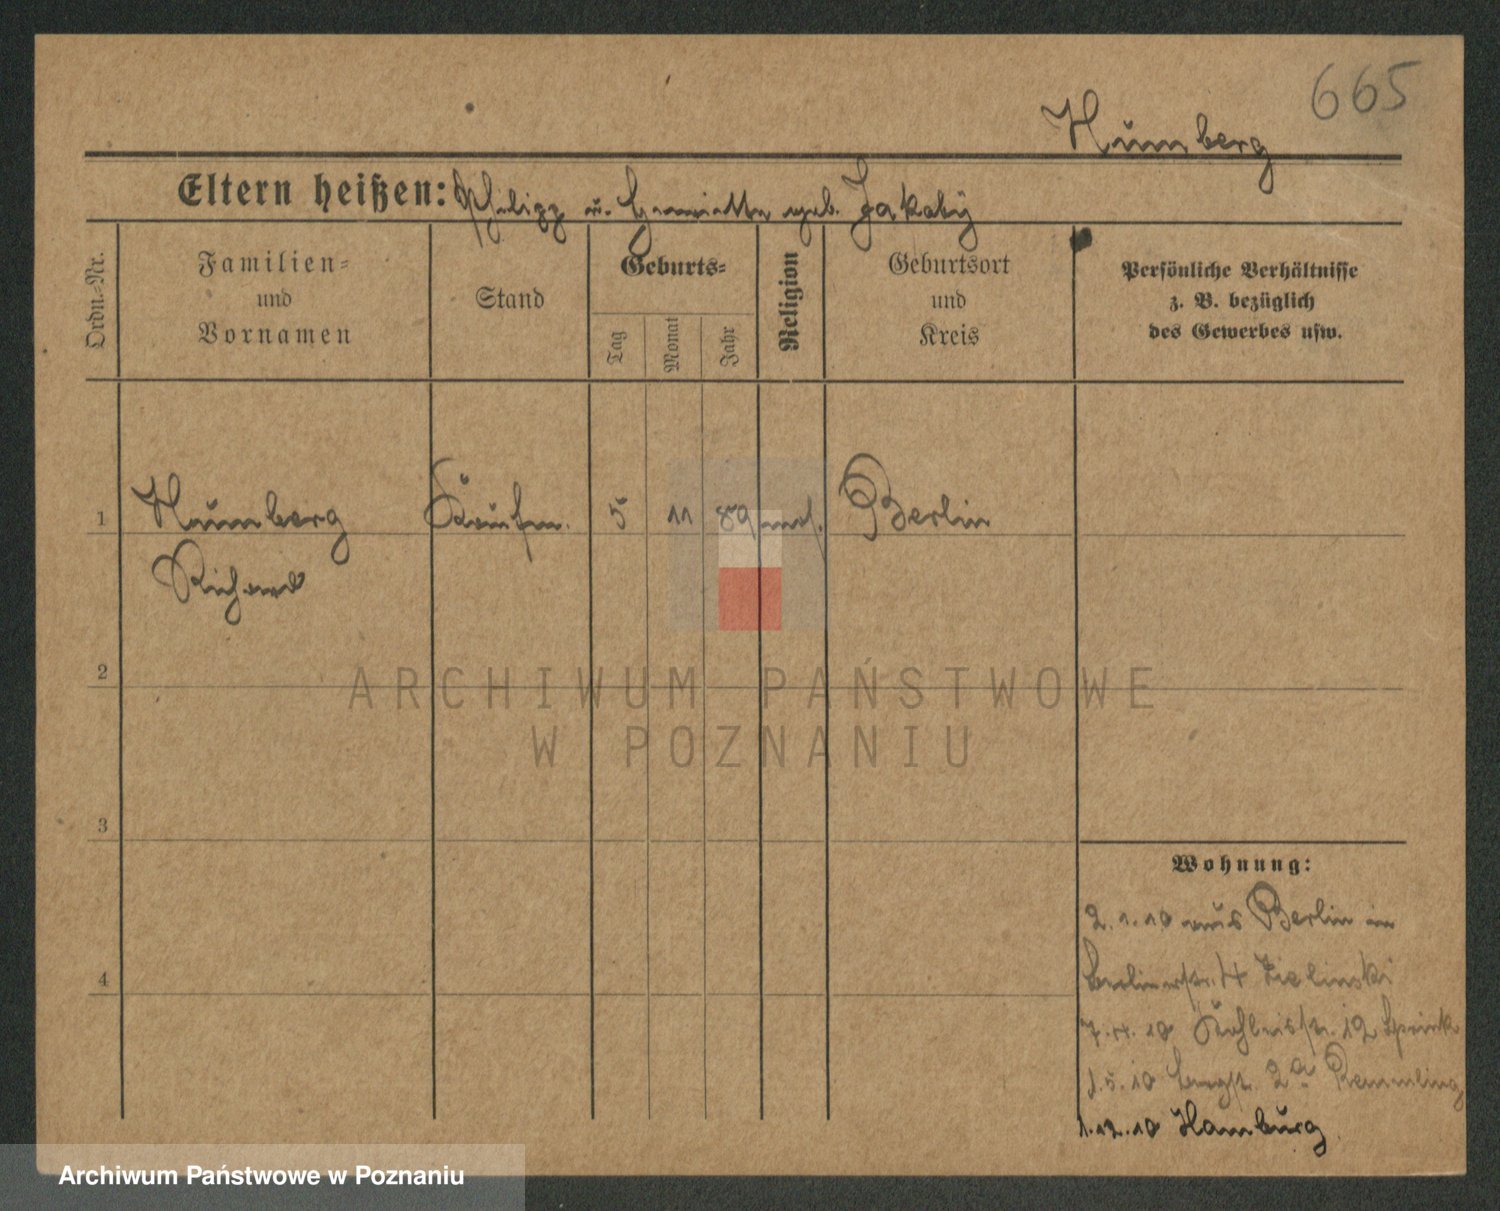 665
Humberg
Eltern heißen: Philipp u. Henriette geb. Jakoby
Ordn.-Nr.
Familien-
und
Vornamen
Stand
Geburts-
Tag
Monat
Jahr
Religion
Geburtsort
und
Kreis
Persönliche Verhältnisse
z. B. bezüglich
des Gewerbes usw.
1 Humberg Kaufm. 5 11 89 mos. Berlin
Richard
2
3
4
Wohnung:
2.1.10 aus Berlin in
Berlinerstr. 4 Zielinski
7.4.10 12
1.5.10 Bergstr. 2a Remmling
1.12.10 Hamburg
ARCHIWUM PAŃSTWOWE
W POZNANIU
Archiwum Państwowe w Poznaniu